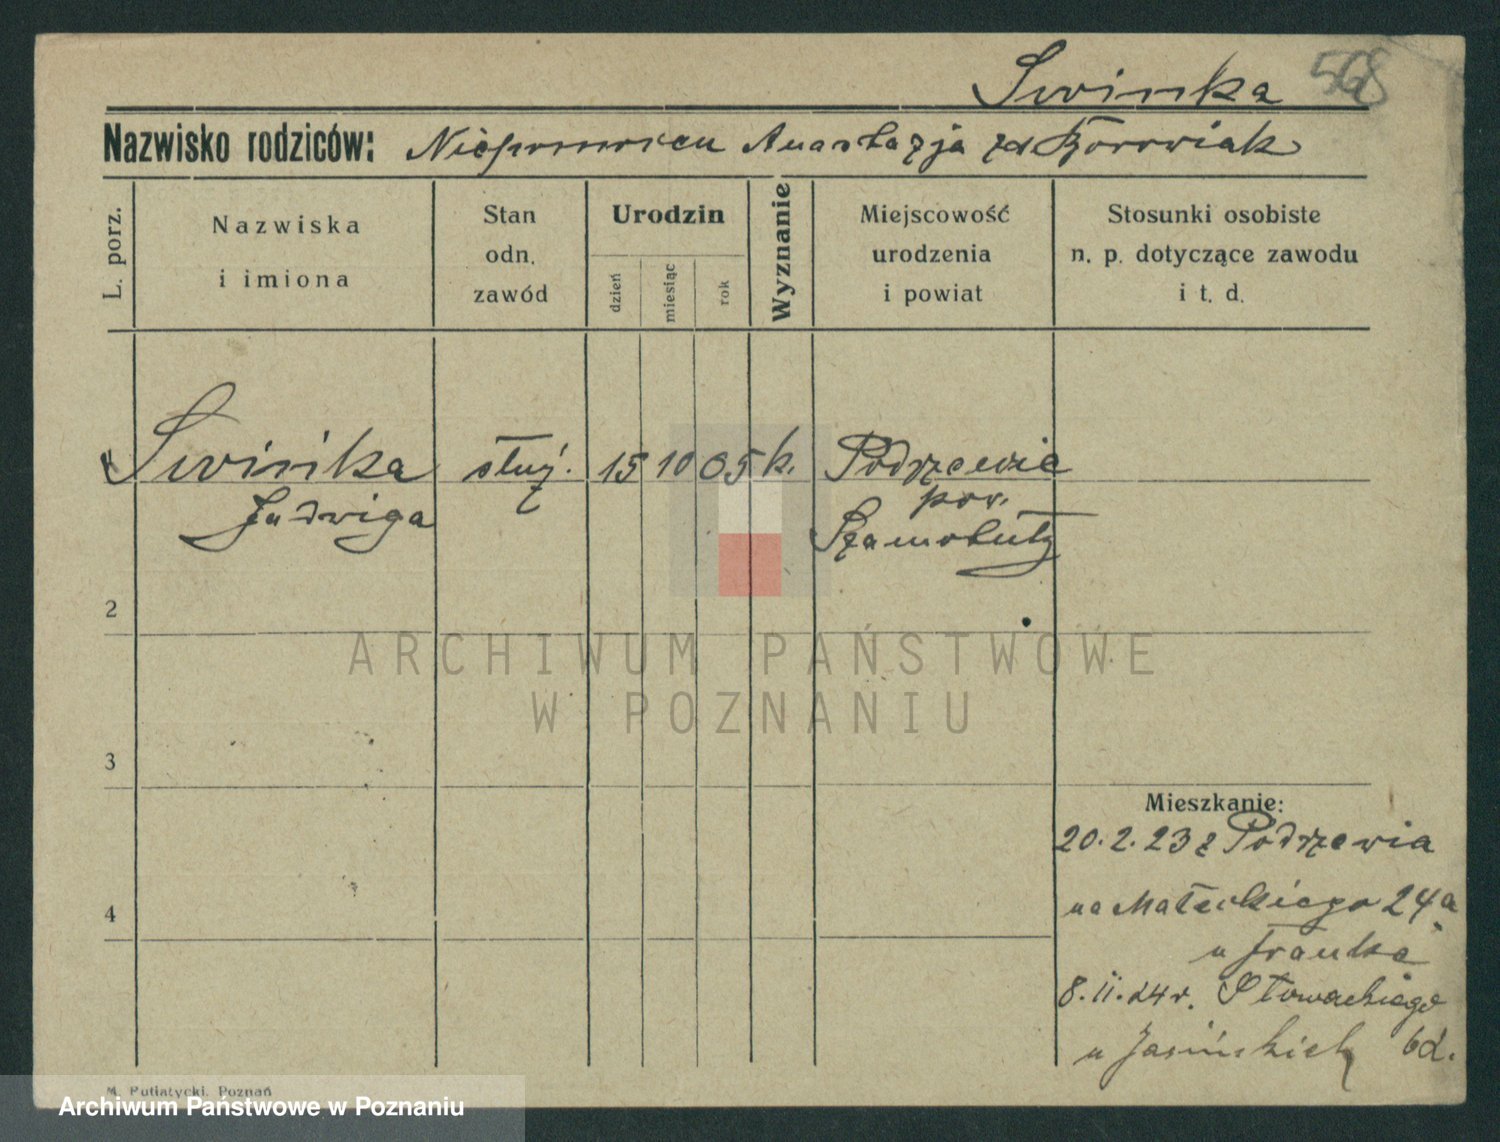 Swinka 568
Nazwisko rodziców: Niepomucen Anastazja zd Borowiak
L. porz.
Nazwiska
i imiona
Stan
odn.
zawód
Urodzin
dzień
miesiąc
rok
Wyznanie
Miejscowość
urodzenia
i powiat
Stosunki osobiste
n. p. dotyczące zawodu
i t. d.
1 Swinka służ. 15 10 05 k. Podrzewie
Jadwiga pow.
Szamotuły
2
3
4
Mieszkanie:
20.2.23 z Podrzewia
na Małeckiego 24a
u Franka
8.II.24r. Słowackiego
u Jasińskich
M. Putiatycki, Poznań
ARCHIWUM PAŃSTWOWE
W POZNANIU
Archiwum Państwowe w Poznaniu